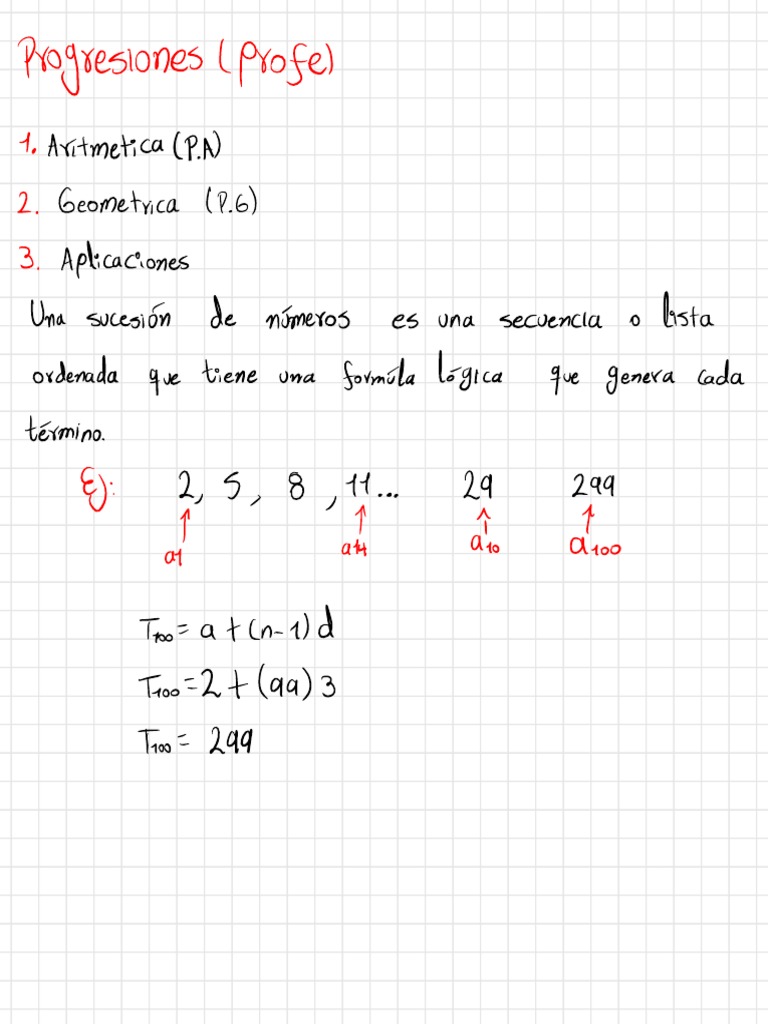 Progresiones (profe)
1. Aritmetica (P.A)
2. Geometrica (P.G)
3. Aplicaciones
Una sucesión de números es una secuencia o lista
ordenada que tiene una formúla lógica que genera cada
término.
Ej: 2, 5, 8, 11... 29 299
a1 a4 a10 a100
T100 = a + (n-1) d
T100 = 2 + (99) 3
T100 = 299